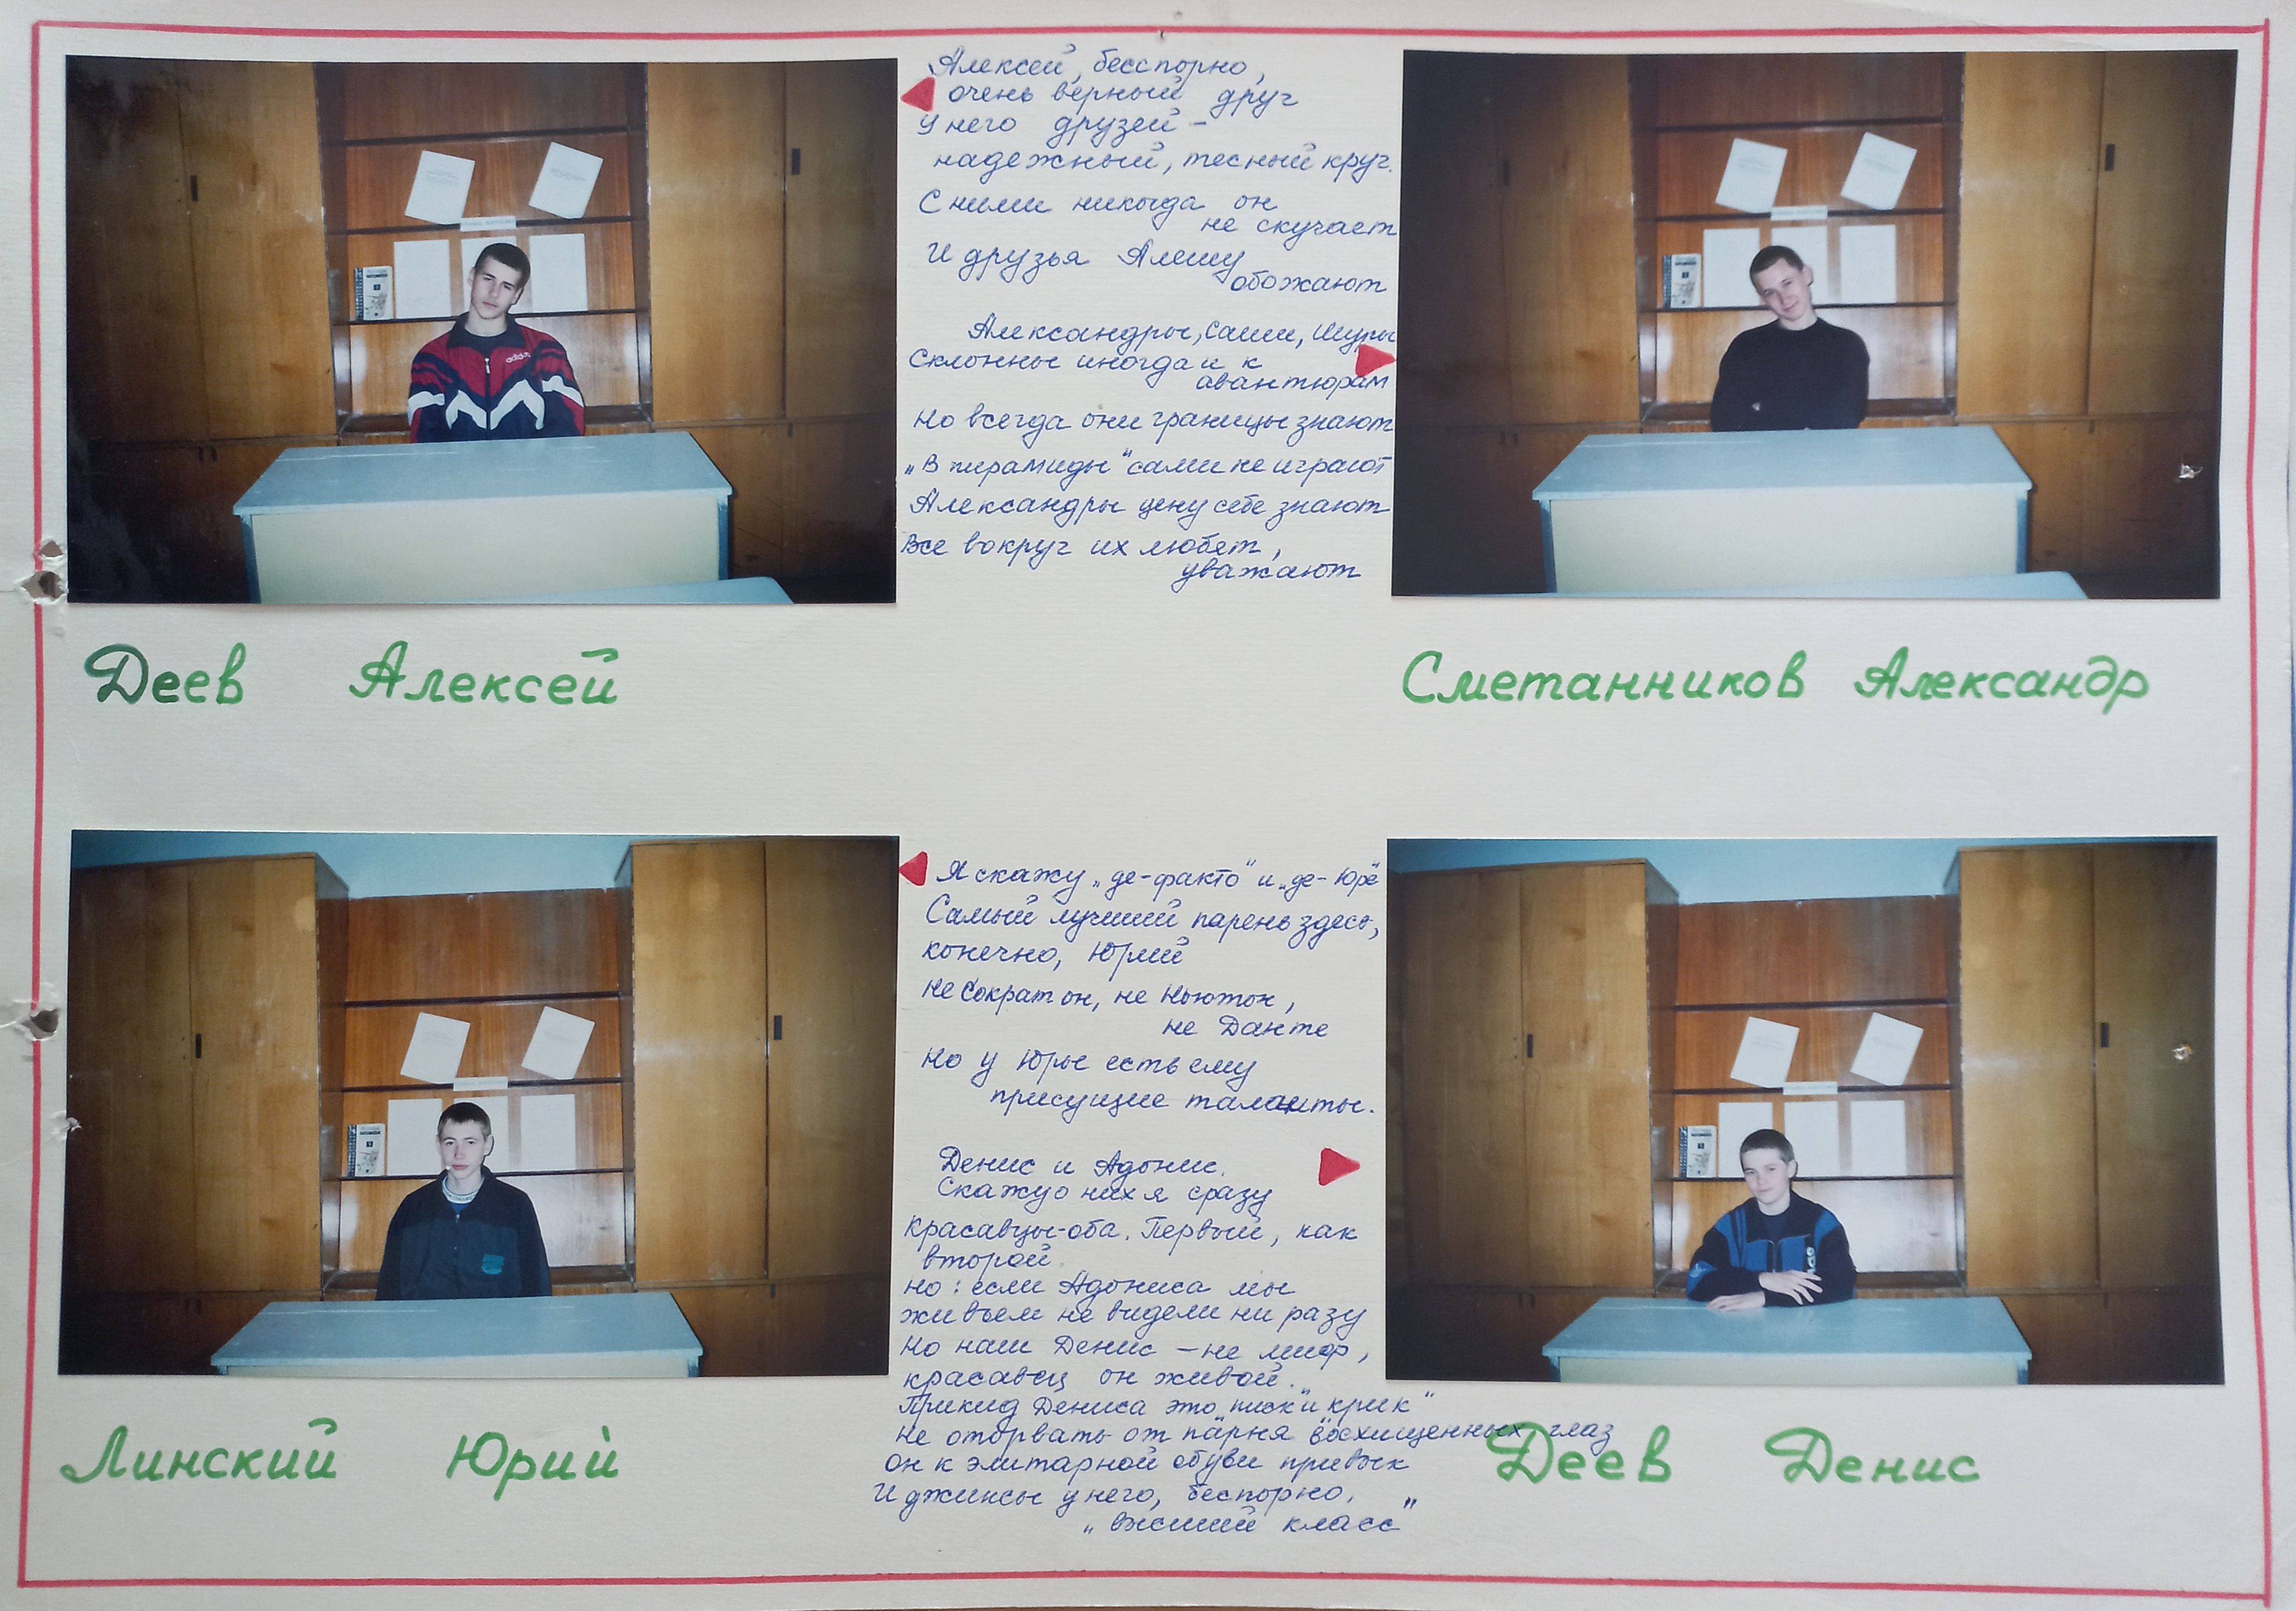 Алексей, бесспорно,
очень верный друг
У него друзей –
надежный, тесный круг.
С ними никогда он
не скучает
И друзья Алешу
обожают
Александры, Саши, Шуры
Склонны иногда и к
авантюрам
Но всегда они границы знают
„В пирамиды" сами не играют
Александры цену себе знают
Все вокруг их любят,
уважают
adidas
Деев Алексей
Сметанников Александр
Я скажу „де-факто" и „де-юре"
Самый лучший парень здесь,
конечно, Юрий
Не Сократ он, не Ньютон,
не Данте
Но у Юры есть ему
присущие таланты.
Денис и Адонис.
Скажу о них я сразу
Красавцы-оба. Первый, как
второй.
Но: если Адониса мы
живьем не видели ни разу
Но наш Денис – не миф,
красавец он живой.
Прикид Дениса это „писк" и „крик"
Не оторвать от парня восхищенных глаз
Он к элитарной обуви привык
И джинсы у него, беспорно,
„высший класс"
Линский Юрий
Деев Денис